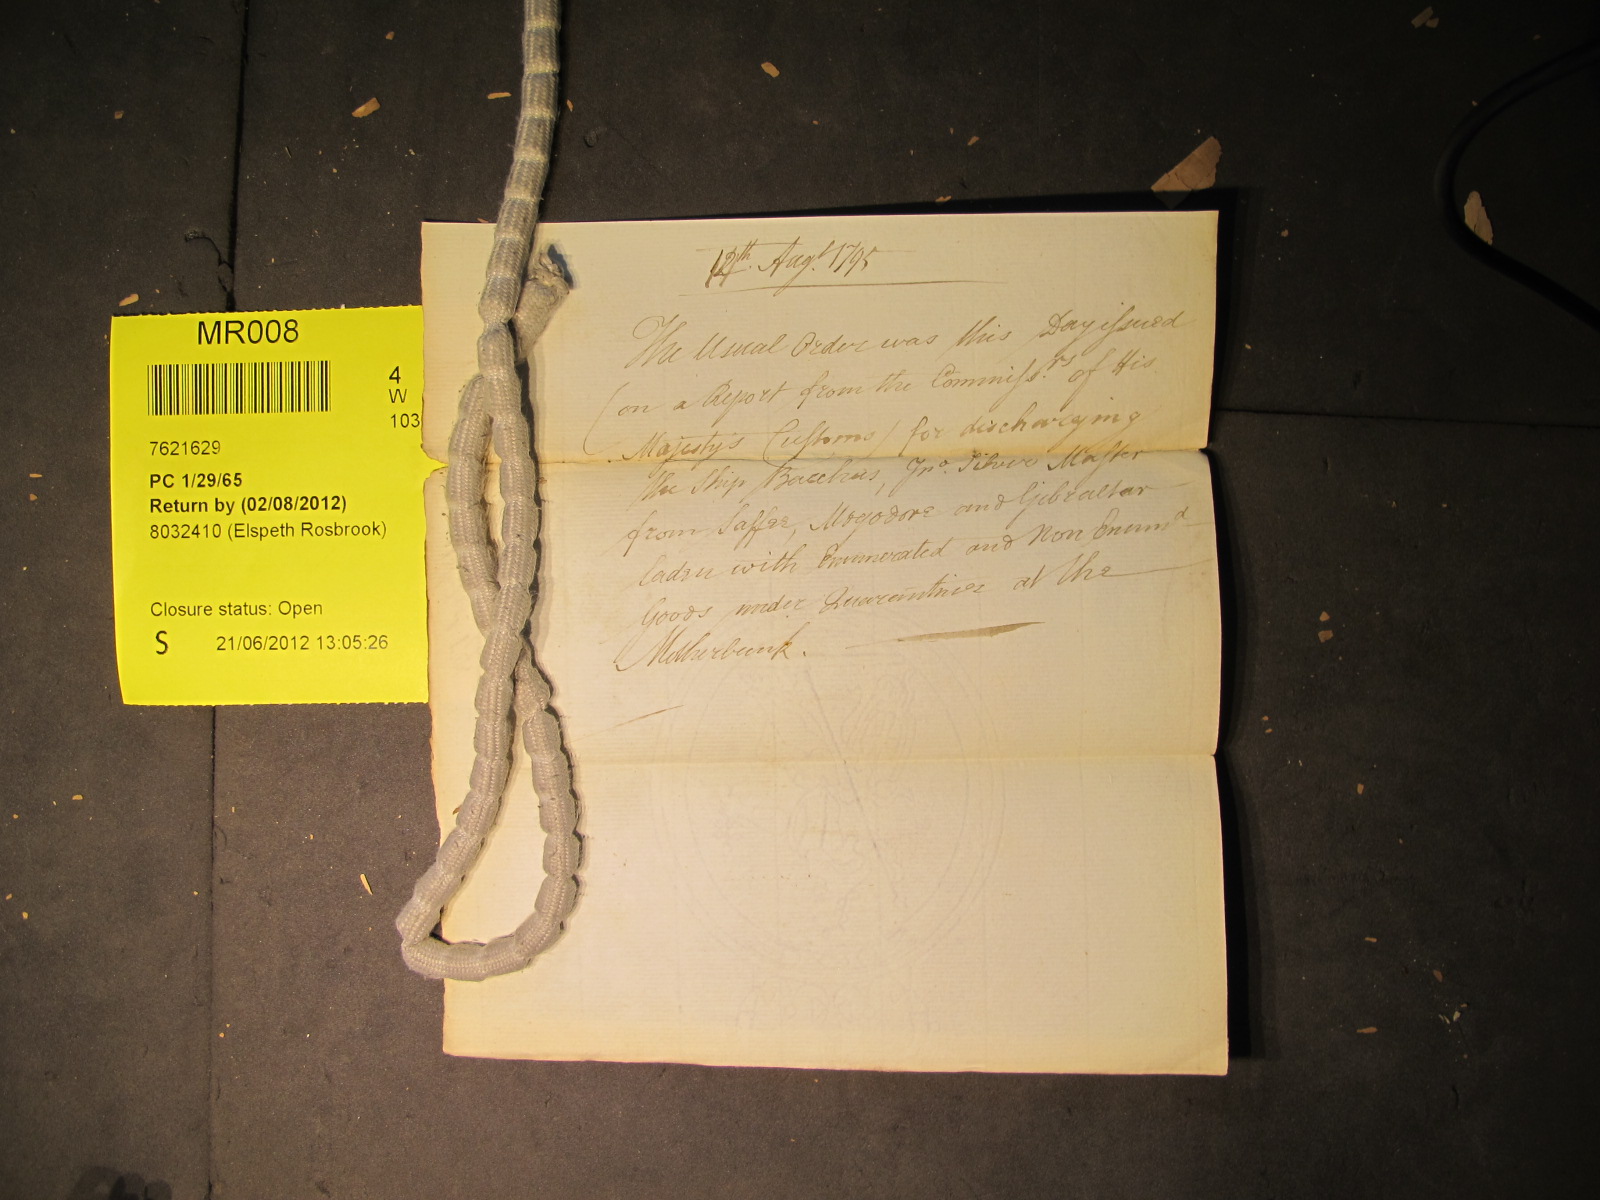 MR008
4
W
103
7621629
PC 1/29/65
Return by (02/08/2012)
8032410 (Elspeth Rosbrook)
Closure status: Open
S 21/06/2012 13:05:26
12th. Augt. 1795
The Usual Order was this Day issued
(on a Report from the Commissrs. of His
Majesty's Customs) for discharging
the Ship Bacchus, Jno. Silver Master
from Saffee, Mogodore and Gibraltar
laden with Enumerated and Non Enumd
Goods under Quarantine at the
Motherbank.